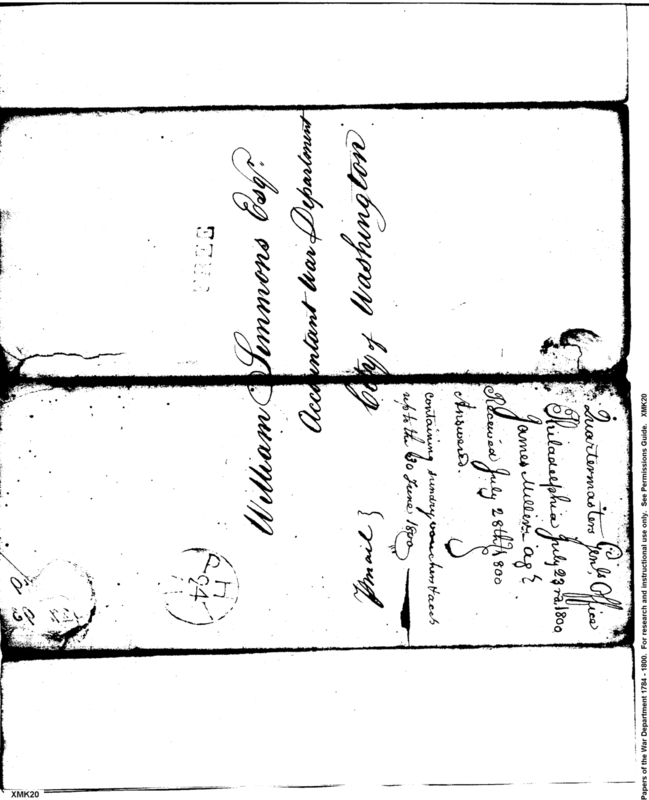 FREE
William Simmons Esqr.
Accountant War Department
City of Washington
mail }
PH
24
Quartermasters Genls Office
Philadelphia July 23rd 1800
James Miller agt.
Received July 28th 1800
Answered.
containing sundry vouchers
up to the 30 June 1800
Papers of the War Department 1784 - 1800. For research and instructional use only. See Permissions Guide. XMK20
XMK20